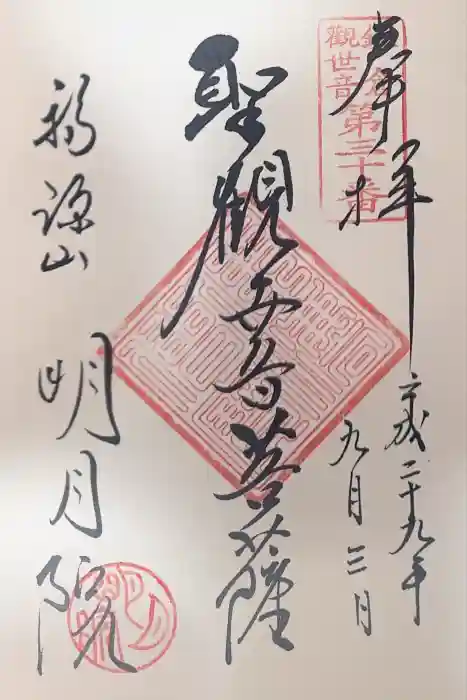 鎌倉
觀世音
第三十番
奉拝
平成二十九年
九月三日
聖觀世音菩薩
福源山 明月院